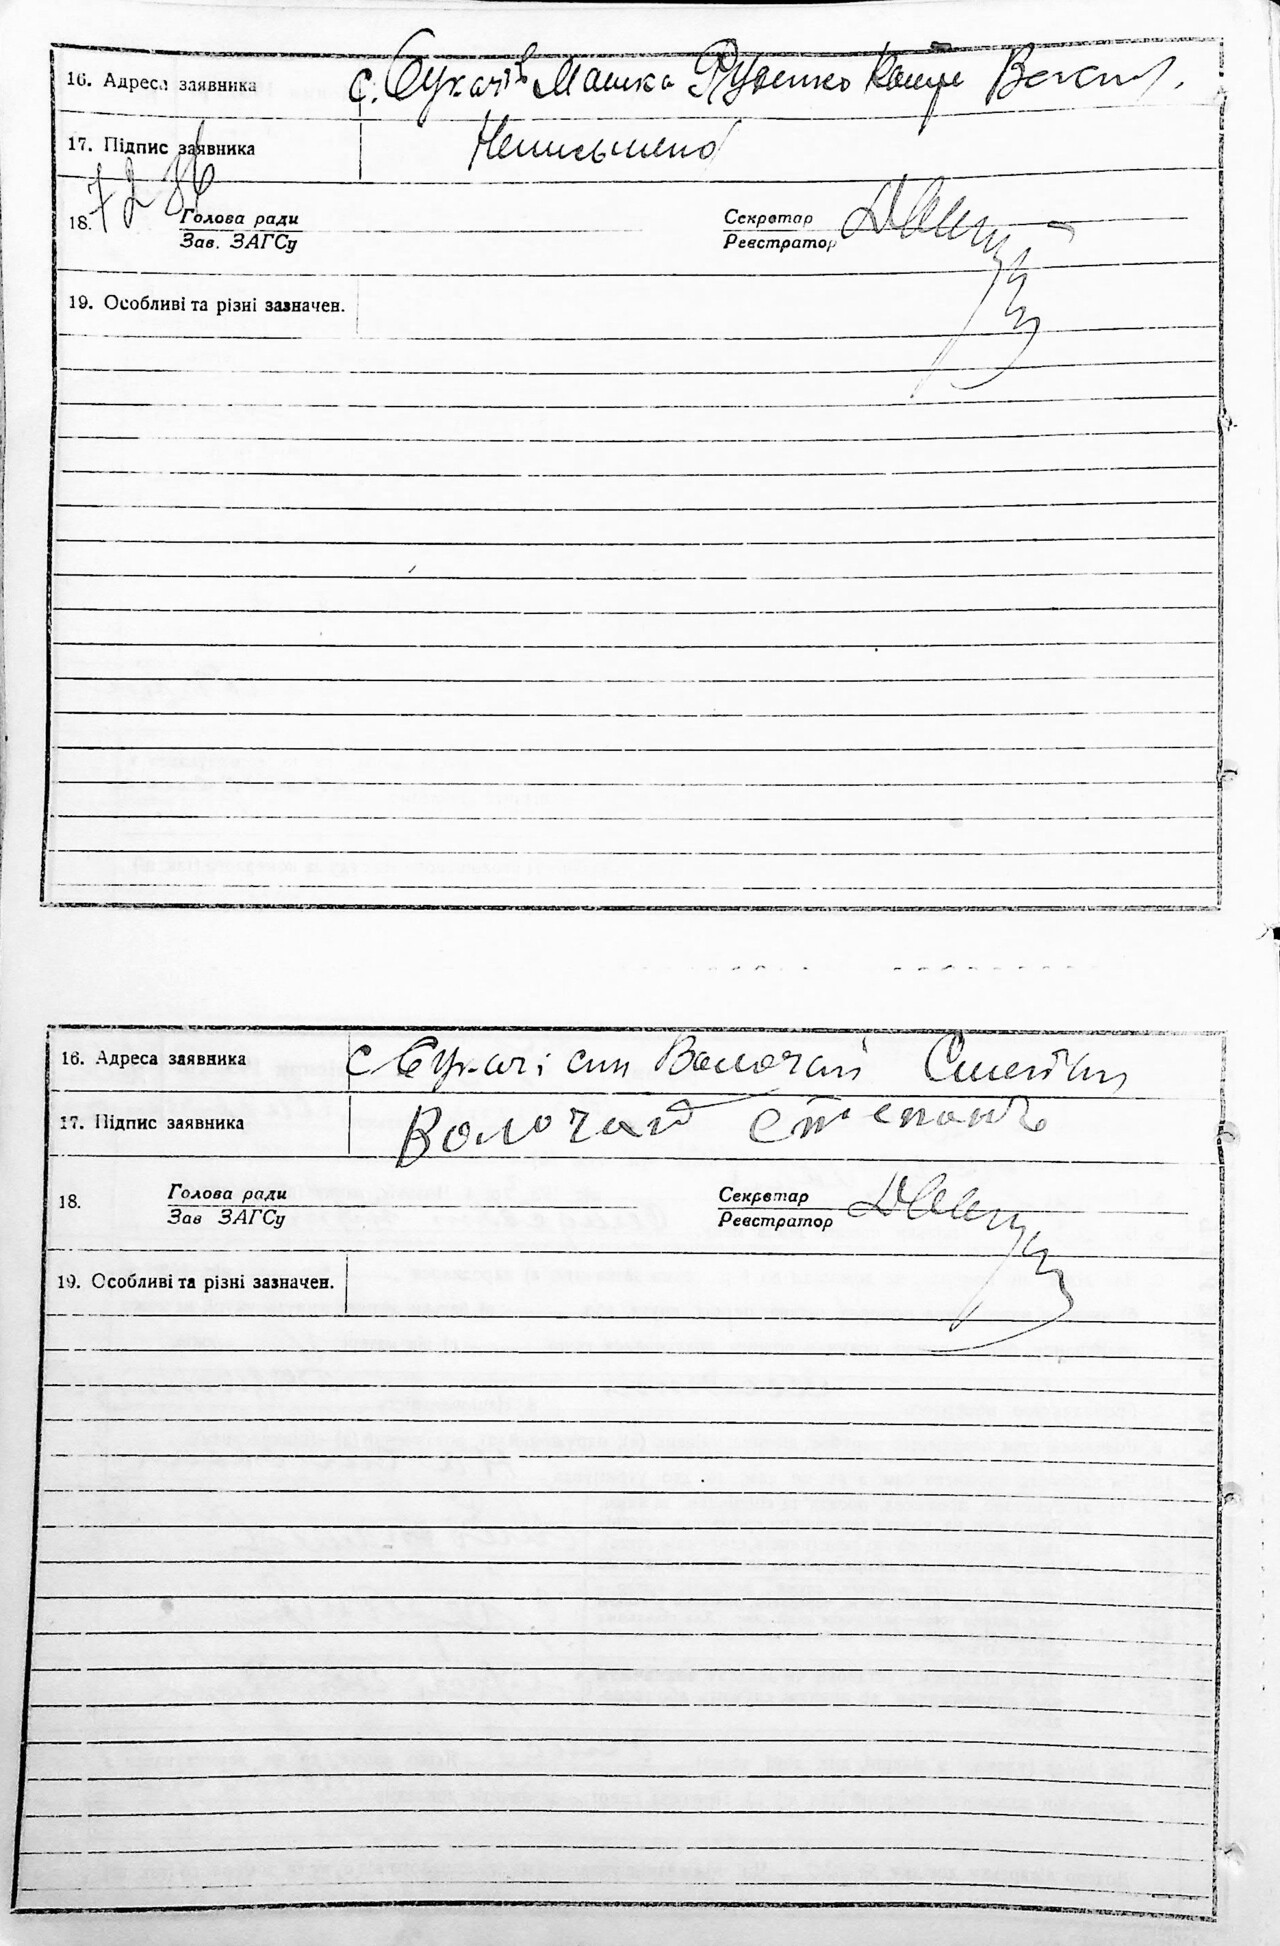 16. Адреса заявника с. Сухачів Машка Руденко
17. Підпис заявника Неписьмено
7 2 34
18. Голова ради Секретар
Зав. ЗАГСу Реєстратор
19. Особливі та різні зазначен.
16. Адреса заявника с Сухачі син Волочай Степан
17. Підпис заявника Волочай Степанъ
18. Голова ради Секретар
Зав ЗАГСу Реєстратор
19. Особливі та різні зазначен.